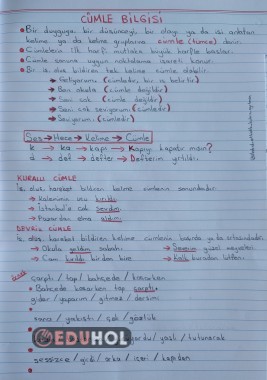 CÜMLE BİLGİSİ
• Bir duyguyu, bir düşünceyi, bir olayı ya da işi anlatan
kelime ya da kelime gruplarına cümle (tümce) denir.
• Cümlelerin ilk harfi mutlaka büyük harfle başlar.
• Cümle sonuna uygun noktalama işareti konur.
• Bir iş, oluş bildiren tek kelime cümle olabilir.
→ Getiyorum. (cümledir, bir iş belirtir)
→ Ben okula (cümle değildir)
→ Seni çok (cümle değildir)
→ Seni çok seviyorum. (cümledir)
→ Seviyorum. (cümledir)
Ses → Hece → Kelime → Cümle
k → ka → kapı → Kapıyı kapatır mısın?
d → def → defter → Defterim yırtıldı.
KURALLI CÜMLE
İş, oluş, hareket bildiren kelime cümlenin sonundadır.
→ Kalemimin ucu kırıldı.
→ İstanbul'u çok sevdim.
→ Pazardan elma aldım.
DEVRİK CÜMLE
İş, oluş, hareket bildiren kelime cümlenin başında ya da ortasındadır.
→ Okula geldim sabahtı.
→ Severim güzel
→ Cam kırıldı birden bire
→ Kalk buradan lütfen.
çarptı / top / bahçede / koşarken
• Bahçede koşarken top çarptı.
gider / yaparım / gitmez / dersimi
•
sana / yakıştı / çok / gözlük
•
yaslı / tutunarak
EDUHOL
sessizce / girdi / arka / içeri / kapıdan
•